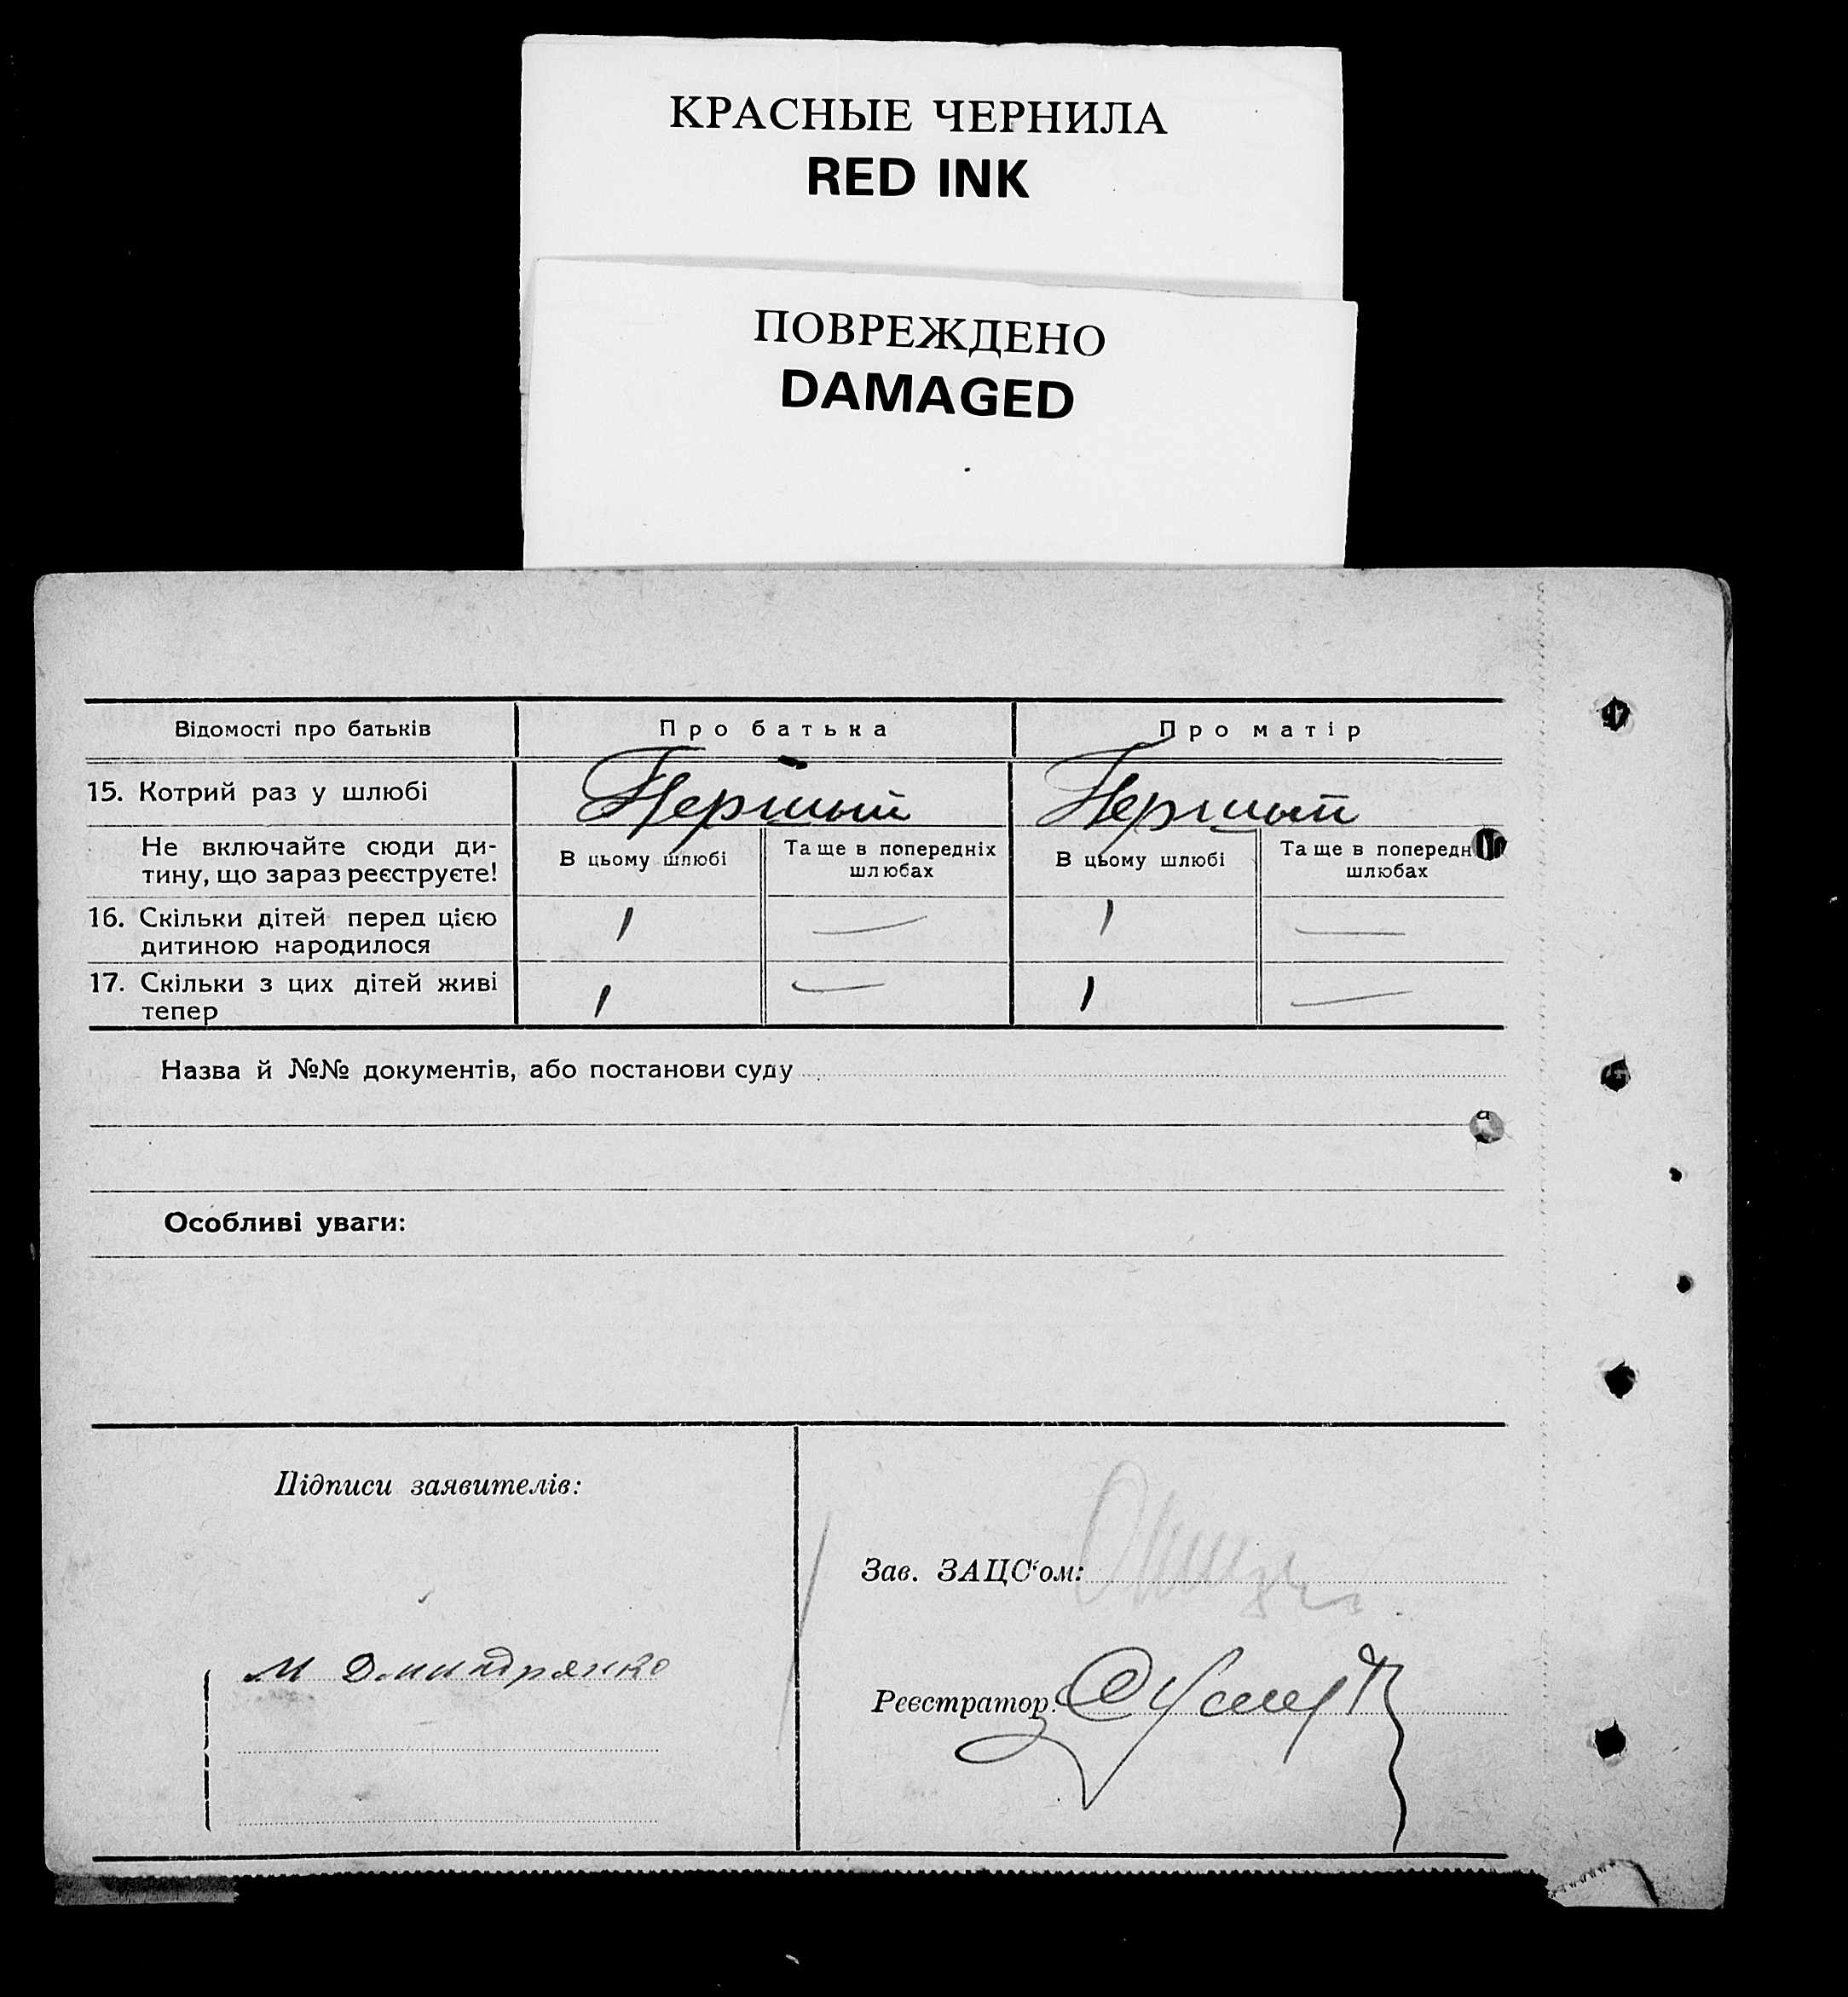 КРАСНЫЕ ЧЕРНИЛА
RED INK
ПОВРЕЖДЕНО
DAMAGED
Відомості про батьків Про батька Про матір
15. Котрий раз у шлюбі Першый Першый
Не включайте сюди ди-
тину, що зараз реєструєте!
В цьому шлюбі
Та ще в попередніх
шлюбах
В цьому шлюбі
Та ще в попередн
шлюбах
16. Скільки дітей перед цією
дитиною народилося
1 — 1 —
17. Скільки з цих дітей живі
тепер
1 — 1 —
Назва й №№ документів, або постанови суду
Особливі уваги:
Підписи заявителів:
Зав. ЗАЦС‘ом:
М
Реєстратор: